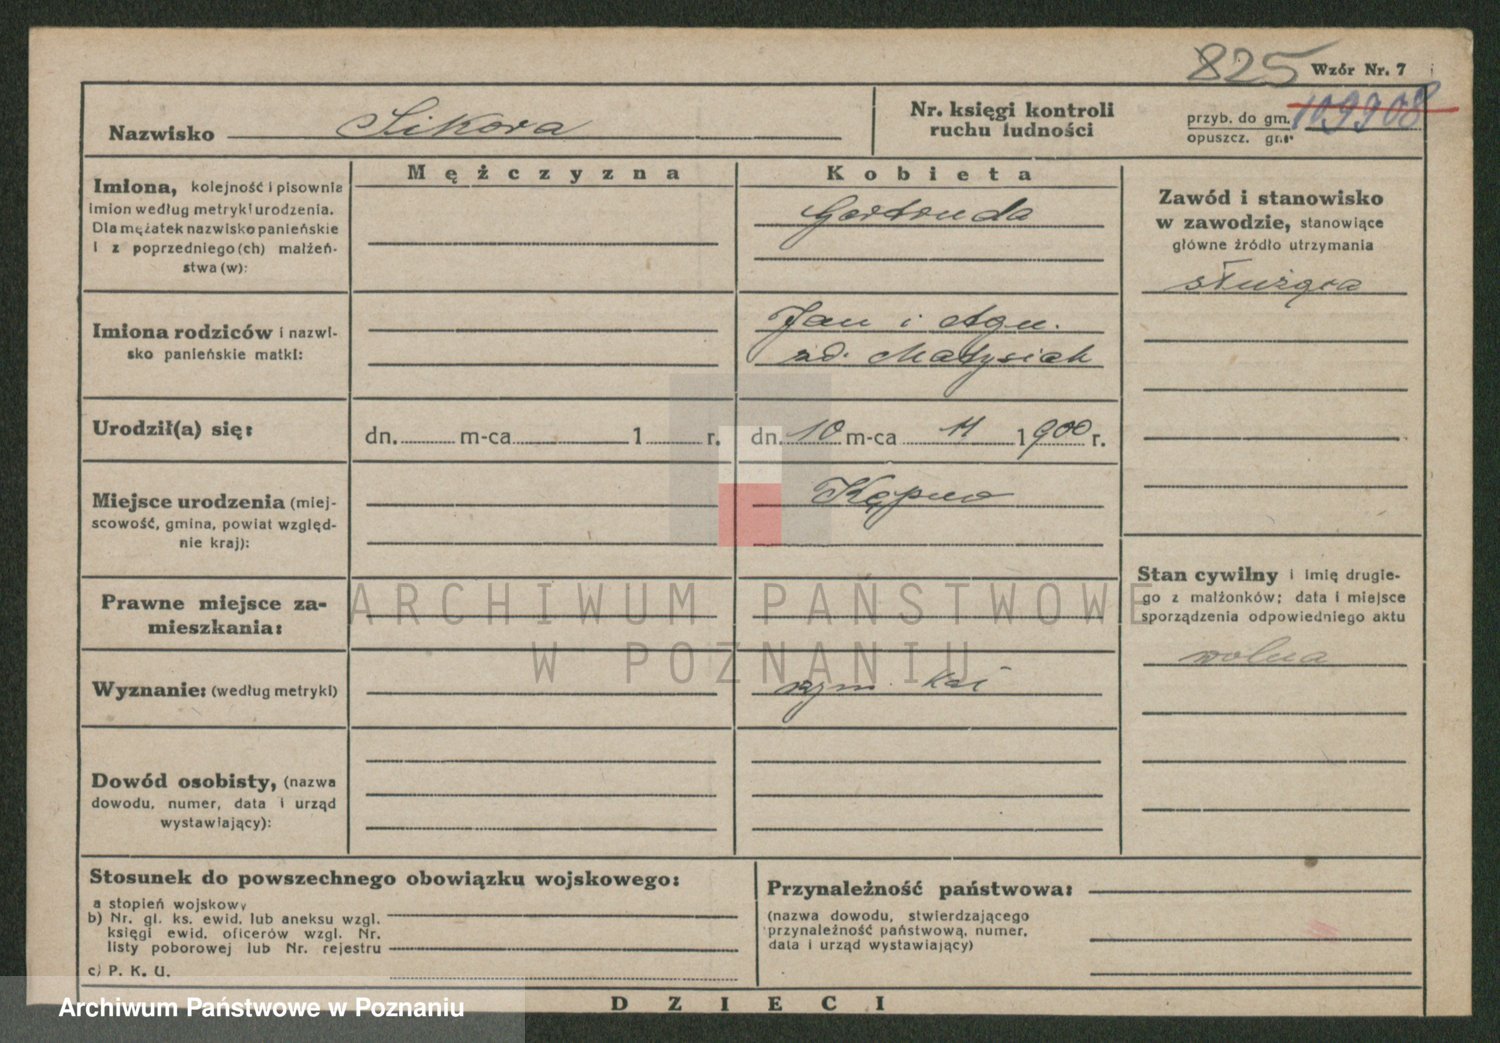 825 Wzór Nr. 7
Nazwisko Sikora
Nr. księgi kontroli
ruchu ludności
przyb. do gm. 109908
opuszcz. gm.
Mężczyzna
Kobieta
Imiona, kolejność i pisownia
imion według metryki urodzenia.
Dla mężatek nazwisko panieńskie
i z poprzedniego (ch) małżeń-
stwa (w):
Gertruda
Zawód i stanowisko
w zawodzie, stanowiące
główne źródło utrzymania
służąca
Imiona rodziców i nazwi-
sko panieńskie matki:
Jan i Agn.
zd. Matysiak
Urodził(a) się:
dn. m-ca 1 r.
dn. 10 m-ca 11 1900 r.
Miejsce urodzenia (miej-
scowość, gmina, powiat względ-
nie kraj):
Kępno
Stan cywilny i imię drugie-
go z małżonków; data i miejsce
sporządzenia odpowiedniego aktu
wolna
Prawne miejsce za-
mieszkania:
ARCHIWUM PAŃSTWOWE
W POZNANIU
Wyznanie: (według metryki)
rzym. kat
Dowód osobisty, (nazwa
dowodu, numer, data i urząd
wystawiający):
Stosunek do powszechnego obowiązku wojskowego:
a stopień wojskowy
b) Nr. gl. ks. ewid. lub aneksu wzgl.
księgi ewid. oficerów wzgl. Nr.
listy poborowej lub Nr. rejestru
c) P. K. U.
Przynależność państwowa:
(nazwa dowodu, stwierdzającego
przynależność państwową, numer,
data i urząd wystawiający)
DZIECI
Archiwum Państwowe w Poznaniu